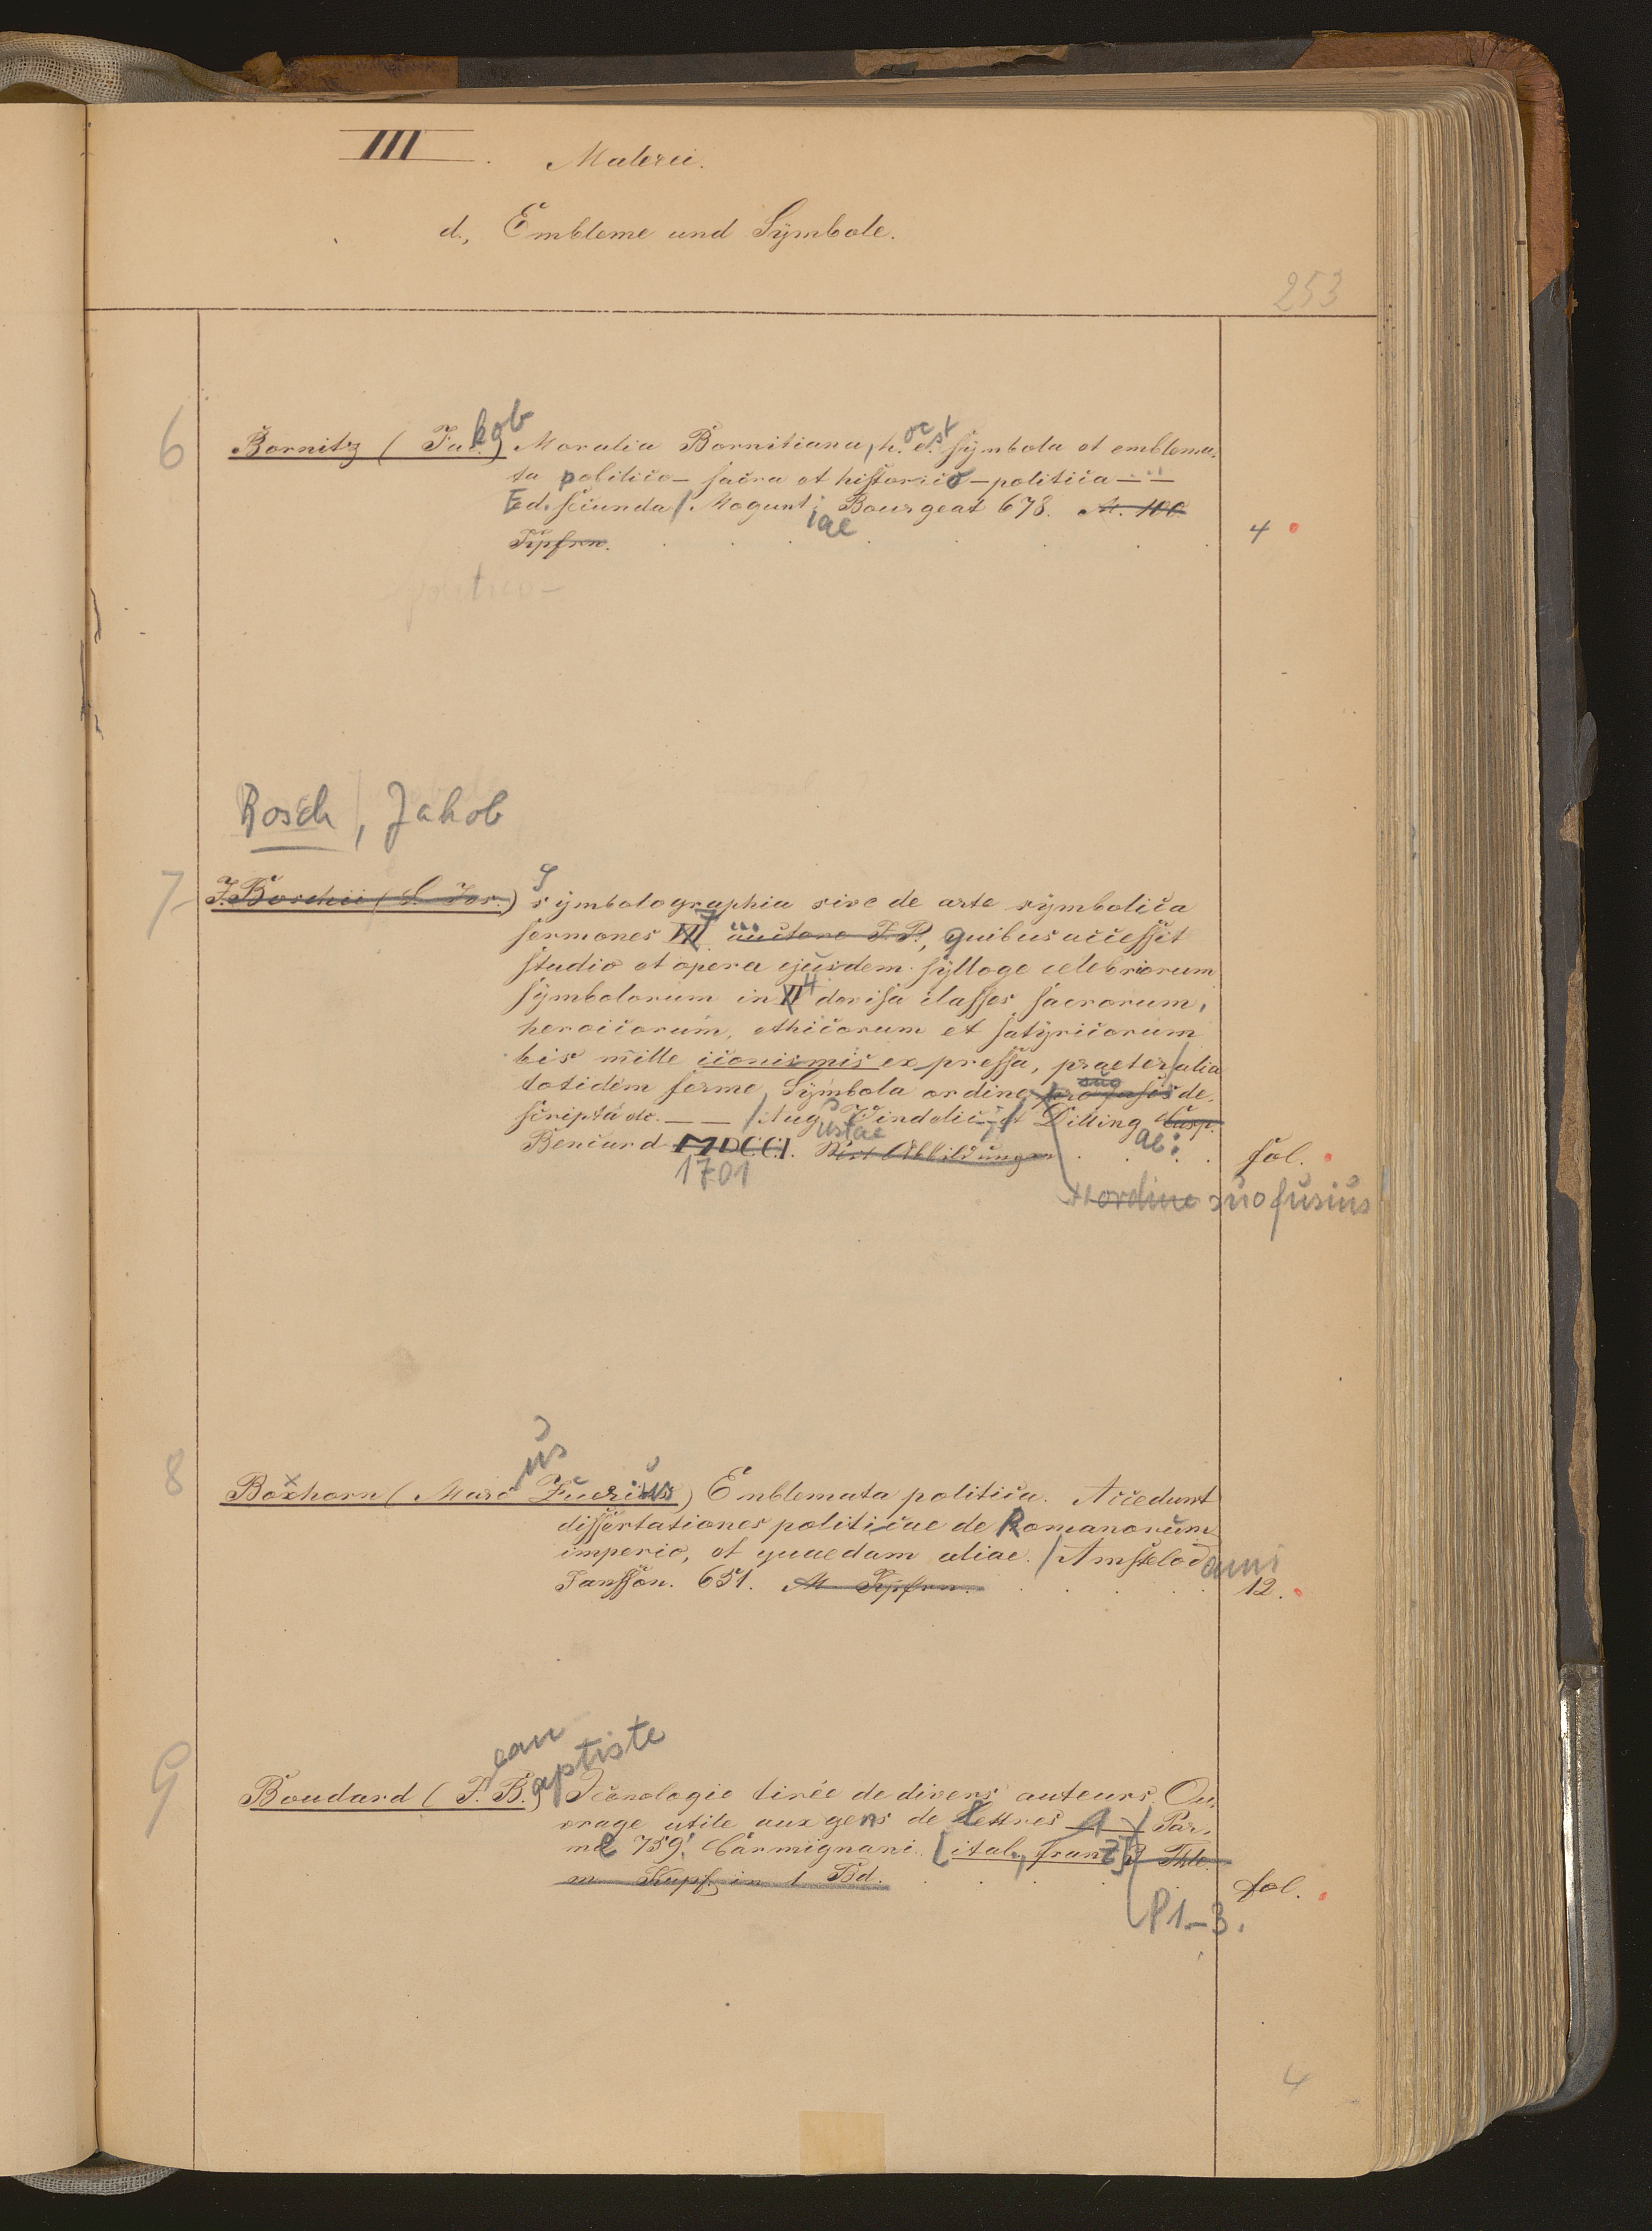 III. Malerei.
d., Embleme und Symbole.
253
6 Bornitz (Jakob) Moralia Bornitiana, hoc est Symbola et emblema-
ta politico-sacra et historico-politica
Ed. secunda / Moguntiae Bourgeat 678. M. 100
Kpfrn. 4
politico-
Bosch, Jakob
7 J. Boschii (S. Jes.) Symbolographia sive de arte symbolica
sermones VII 7 auctore J. B., quibus accessit
studio et opera ejusdem sylloge celebriorum
symbolorum in VI 4 divisa classes sacrorum,
heroicorum, ethicorum et satyricorum
bis mille iconismis expressa, praeter / alia
totidem ferme Symbola ordine suo fusis de-
scripta etc. — — / Augustae Vindelic. et Dilling ae: Casp.
Bencard MDCCI. Viele Abbildungen fol.
1701
ordine suo fusius
8 Boxhorn (Marcus Zuerius) Emblemata politica. Accedunt
dissertationes politicae de Romanorum
imperio, et quaedam aliae. / Amstelodami
Jansson. 651. M. Kpfrn. 12.
9 Boudard (Jean Baptiste) Iconologie tirée de divers auteurs. Ou-
vrage utile aux gens de lettres Par-
me 759. Carmignani. [ital., franz.] 3 Thle.
m. Kupf. in 1 Bd. fol.
P 1-3.
4